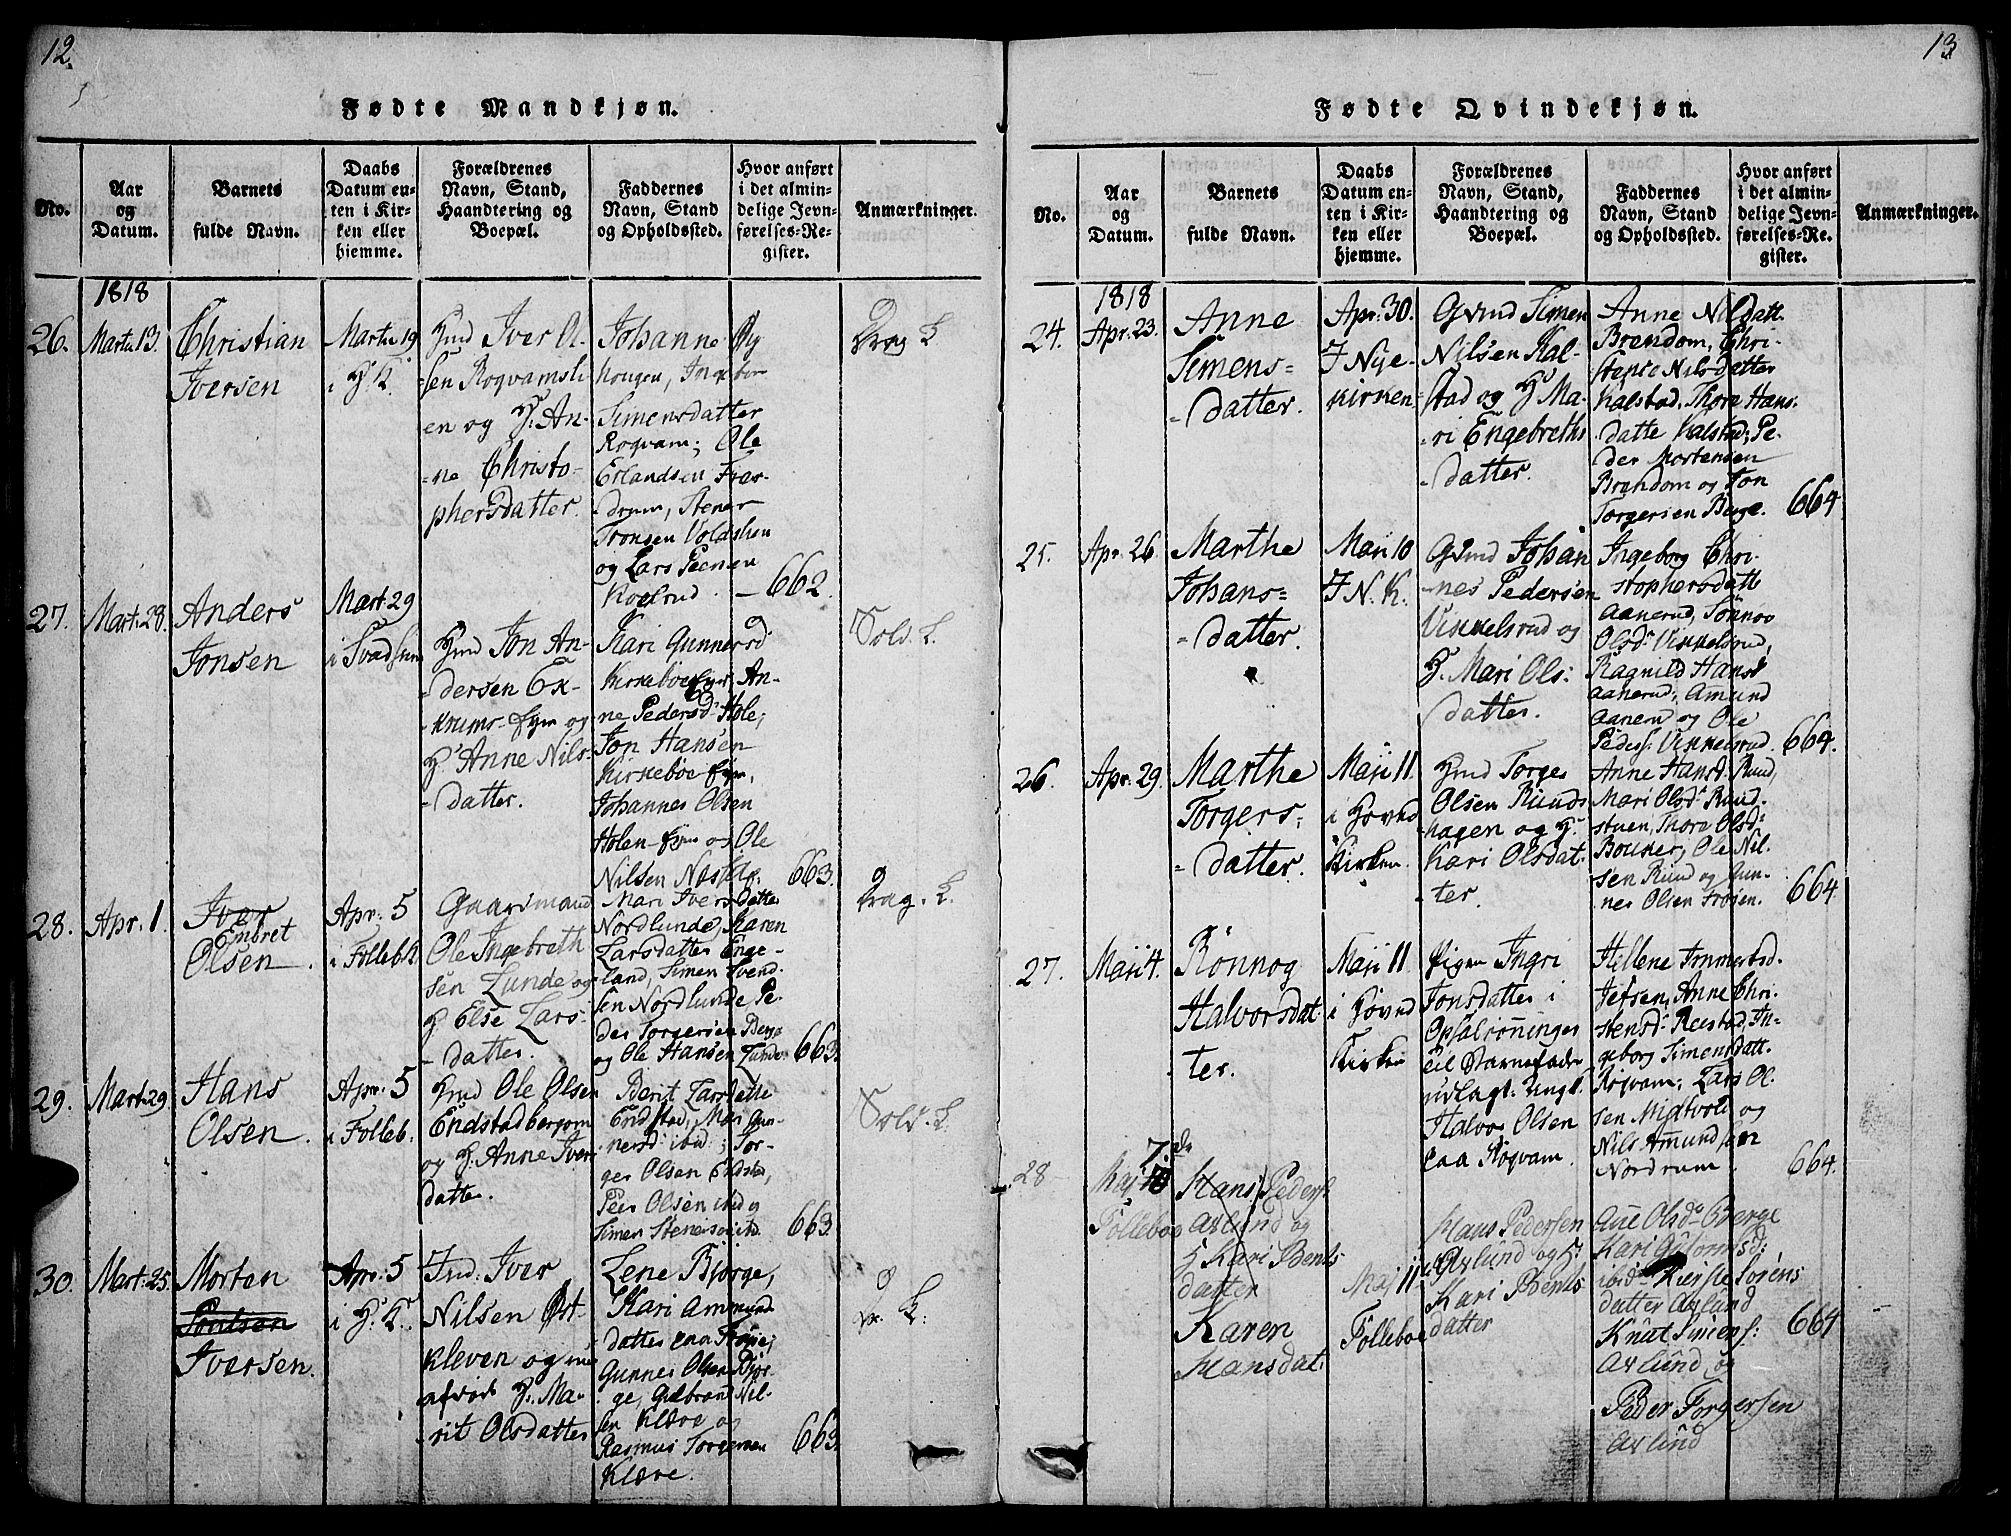 12.
Fødte Mandkjøn.
No.
Aar
og
Datum.
Barnets
fulde Navn.
Daabs
Datum en-
ten i Kir-
ken eller
hjemme.
Forældrenes
Navn, Stand,
Haandtering og
Boepæl.
Faddernes
Navn, Stand
og Opholdssted.
Hvor anført
i det almin-
delige Jevn-
førelses-Re-
gister.
Anmærkninger.
1818
26.
Marti 13.
Christian
Iversen
Marti 19
i H. K.
Hmd Iver Ol-
sen Rogvamsli-
en og H: An-
-ne Christo-
phersdatter.
Johanne
Simensdatter
Rogvam; Ole
Erlandsen
Tronsen
og Lars
662.
27.
Mart: 28.
Anders
Jonsen
Mart: 29
Hmd Jon An-
-dersen
og
H: Anne Nils-
-datter.
Kari Gunnersd
An-
ne Pedersd: Hole,
Jon Hansen
Kirkeböe
Johannes Olsen
Holen og Ole
Nilsen
663.
Sold. L.
28.
Apr: 1.
Iver
Embret
Olsen.
Apr: 5
i Folleb K
Gaardmand
Ole Ingebreth
sen Lunde og
H Else Lars-
-datter.
Mari Iversdatter
Nordlunde, Karen
Larsdatter Enge-
land, Simen Svend-
sen Nordlunde Pe-
der Torgersen Berge
og Ole Hansen Lunde
663.
29.
Mart: 29.
Hans
Olsen.
Apr: 5
i Folleb.
Hmd Ole Olsen
Endstadbergom
og H: Anne Ivers
datter.
Berit Larsdatte
Endstad, Mari Gun-
nersd: ibid; Tor-
ger Olsen Endstad,
Peer Olsen ibid og
Simen
663.
Sold. L.
30.
Mart: 25.
Morten
Iversen.
Apr: 5
i H: K.
Ind. Iver
Nilsen Öst-
kleven og
H: Ma-
rit Olsdatter
Lene Björge,
Kari Ammund
datter paa
Gunner Olsen Björ-
ge, Gulbrand Nil-
sen Klæve og
Rasmus Torgersen
Klæve.
663.
13
Fødte Qvindekjøn.
No.
Aar
og
Datum.
Barnets
fulde Navn.
Daabs
Datum en-
ten i Kir-
ken eller
hjemme.
Forældrenes
Navn, Stand,
Haandtering og
Boepæl.
Faddernes
Navn, Stand
og Opholdssted.
Hvor anført
i det almin-
delige Jevn-
førelses-Re-
gister.
Anmærkninger.
1818
24.
Apr: 23.
Anne
Simens-
-datter.
Apr: 30.
I Nye-
kirken
Gvmd Simen
Nilsen Kal-
stad og H: Ma-
-ri Engebreths
-datter.
Anne Nilsdatt.
Brendom, Chri-
stense Nilsdatter
Kalstad, Thore Hans-
datte Kalstad; Pe-
der Mortensen
Brendom og Jon
Torgersen Berge.
664.
25.
Apr: 26.
Marthe
Johans-
-datter.
Maji 10
I N. K.
Gvmd Johan
-nes Pedersen
Vikkelsrud og
H. Mari Ols:
datter.
Ingeborg Chri-
stophersdatt
Aanerud, Sönnov
Olsd: Vikkelsrud,
Ragnild Hansd
Aanerud; Amund
Aanerud og Ole
Peders: Vikkelsrud.
664.
26.
Apr: 29.
Marthe
Torgers-
-datter.
Maji 11.
i Hovnd
Kirken.
Hmd Torger
Olsen Ruuds-
hagen og H:
Kari Olsdat-
ter.
Anne Hansd: Ruud,
Mari Olsd: Ruud-
stuen, Thore Olsd:
Ole Nil-
sen Ruud og Gun-
ner Olsen Frösen.
664.
27.
Maji 4.
Rönnog
Halvorsdat-
ter.
Maji 11
i Hovnd
Kirken
Pigen Ingri
Jonsdatter i
til Barnefader
udlagt: Ungk.
Halvor Olsen
paa Rogvam.
Hellene
Anne Chri-
stensd: In-
geborg Simensdatt.
Rogvam; Lars Ol-
sen og
Nils Amundsen
Nordrum.
664.
28
Maj 7. de
Folleboe
Hans Peders:
Axlund og
H Kari Bents
datter
Karen
Hansdat:
Maj 11
Folleboe
Hans Pedersen
Axlund og H:
Kari Bents-
datter
Ane Olsd: Berge
Kari Gutormsd:
ibid: Kierste Sörens
datter Axlund
Knut Simens:
Axlund og
Peder Torgersen
Axlund
664